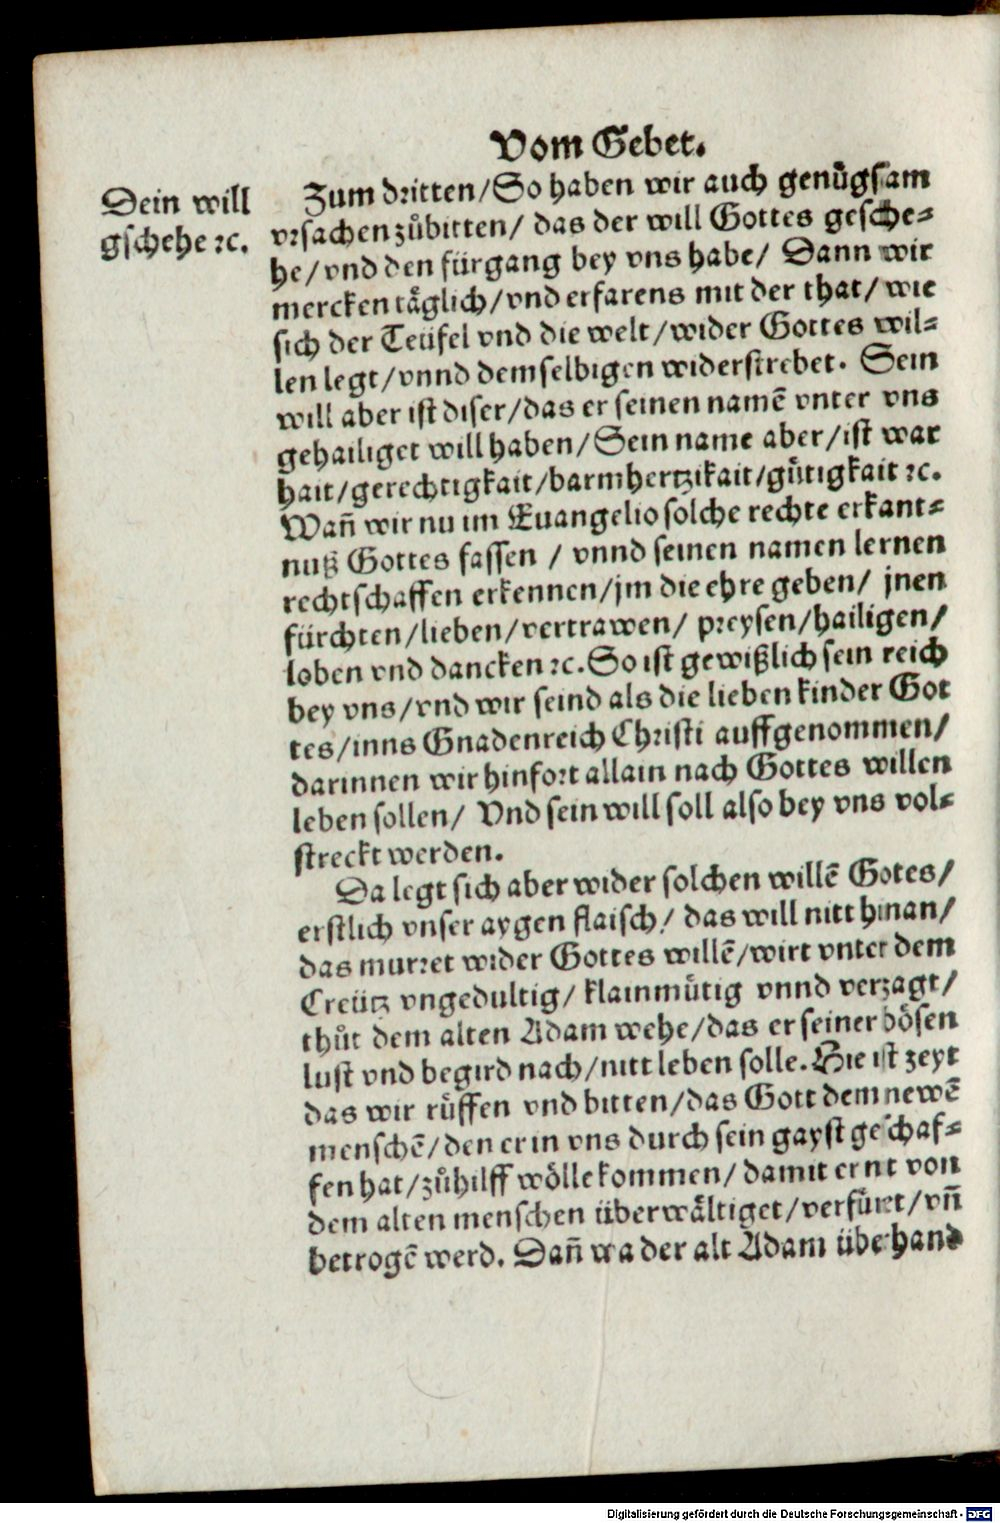 Vom Gebet.
Dein will
gschehe ꝛc.
Zum dritten/ So haben wir auch genůgsam
vrsachen zůbitten/ das der will Gottes gesche⸗
he/ vnd den fürgang bey vns habe/ Dann wir
mercken täglich/ vnd erfarens mit der that/ wie
sich der Teüfel vnd die welt/ wider Gottes wil⸗
len legt/ vnnd demselbigen widerstrebet. Sein
will aber ist diser/ das er seinen namē vnter vns
gehailiget will haben/ Sein name aber/ ist war
hait/ gerechtigkait/ barmhertzikait/ gůtigkait ꝛc.
Wañ wir nu im Euangelio solche rechte erkant⸗
nuß Gottes fassen / vnnd seinen namen lernen
rechtschaffen erkennen/ jm die ehre geben/ jnen
fürchten/ lieben/ vertrawen/ preysen/ hailigen/
loben vnd dancken ꝛc. So ist gewißlich sein reich
bey vns/ vnd wir seind als die lieben kinder Got
tes/ inns Gnadenreich Christi auffgenommen/
darinnen wir hinfort allain nach Gottes willen
leben sollen/ Vnd sein will soll also bey vns vol⸗
streckt werden.
Da legt sich aber wider solchen willē Gotes/
erstlich vnser aygen flaisch/ das will nitt hinan/
das murret wider Gottes willē/ wirt vnter dem
Creütz vngedultig/ klainmůtig vnnd verzagt/
thůt dem alten Adam wehe/ das er seiner bösen
lust vnd begird nach/ nitt leben solle. Hie ist zeyt
das wir růffen vnd bitten/ das Gott dem newē
menschē/ den er in vns durch sein gayst geschaf⸗
fen hat/ zůhilff wölle kommen/ damit er nt von
dem alten menschen überwältiget/ verfüret/ vñ
betrogē werd. Dañ wa der alt Adam überhand
Digitalisierung gefördert durch die Deutsche Forschungsgemeinschaft - DFG